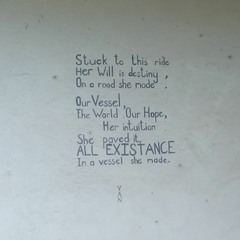 Stuck to this ride
Her Will is destiny,
On a road she made.
Our Vessel,
The World Our Hope,
Her intuition
She paved it,
ALL EXISTANCE
In a vessel she made.
VAN